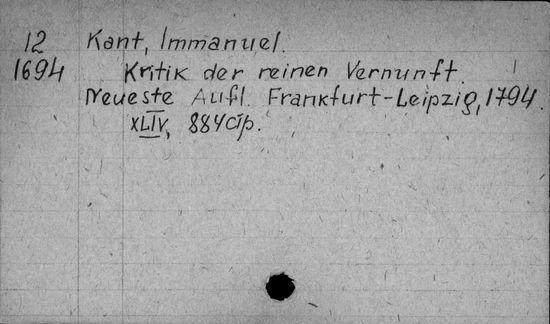 12 Kant, Immanuel.
1694 Kritik der reinen Vernunft.
Neueste Aufl. Frankfurt-Leipzig, 1794.
XLIV, 884 с̄тр.